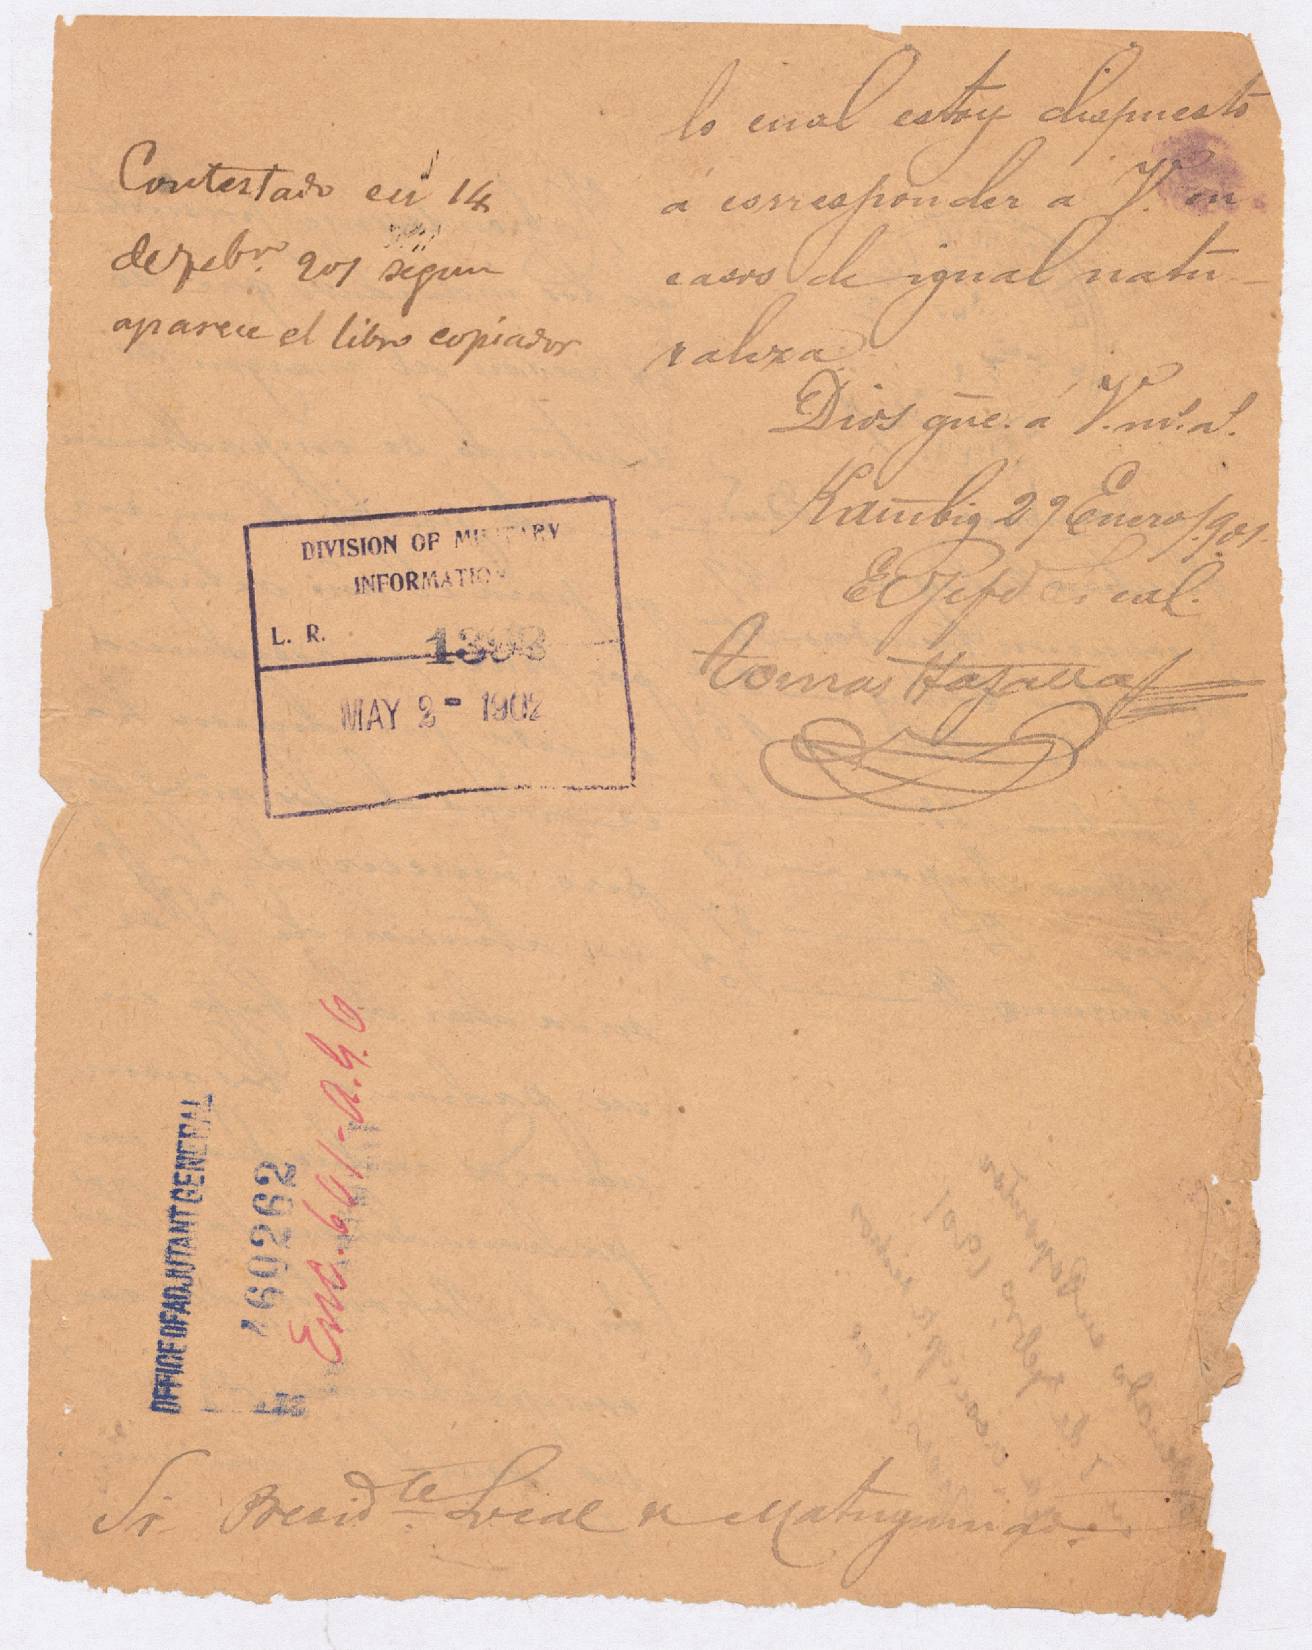 lo cual estoy dispuesto
á corresponder a V. en
casos de igual natu-
raleza.
Dios gūe. á V. m.s a.s
Kambig 29 Enero /901.
El Jefe Local.
Tomas
Contestado en 14
de febro. 901 segun
aparece el libro copiador
DIVISION OF MILITARY
INFORMATION
L. R. 1393
MAY 2- 1902
OFFICE OF ADJUTANT GENERAL
160262
Enc. 661-A.G.O.
Sr. Presid.te Local de Matuguinao.